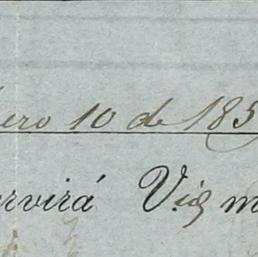 ero 10 de 185
rvirá V. m